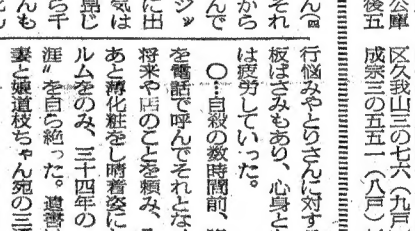 公庫
後五
区久我山三の七六（九戸）
成宗三の五五一（八戸）
行悩みやとりさんに対す
板ばさみもあり、心身と
は疲労していった。
〇…自殺の数時間前、
を電話で呼んでそれとな
将来や店のことを頼み、
あと薄化粧をし晴着姿に
ルムをのみ、三十四年の
涯〃を自ら絶った。遺書は
妻と娘道枝ちゃん宛の三通
ん（四
それ
から
んで
ジッ
に出
気は
同じ
ら千